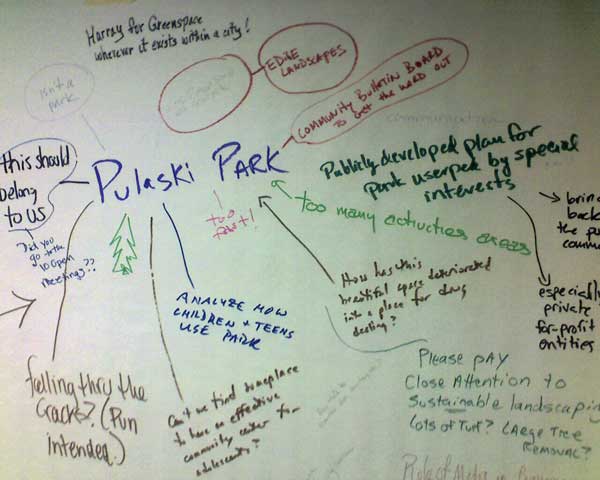 Hurray for Greenspace
wherever it exists within a city!
EDIBLE
LANDSCAPES
COMMUNITY BULLETIN BOARD
TO GET THE WORD OUT
isn't a
park
communication
this should
belong
to US
PULASKI PARK
Publicly developed plan for
Park userped by special
interests
too
Too many activities areas
Did you
go to the
10 open
meetings??
bring
back
the pu
commu
How has this
beautiful space deteriorated
into a place for drug
dealing?
especially
private
for-profit
entities
ANALYZE HOW
CHILDREN + TEENS
USE PARK
falling thru the
Cracks? (Pun
intended.)
Can't we find someplace
to have an effective
community center for
adolescents?
Please pay
Close Attention to
Sustainable landscaping
Lots of Turf? Large Tree
REMOVAL?
Role of Media in